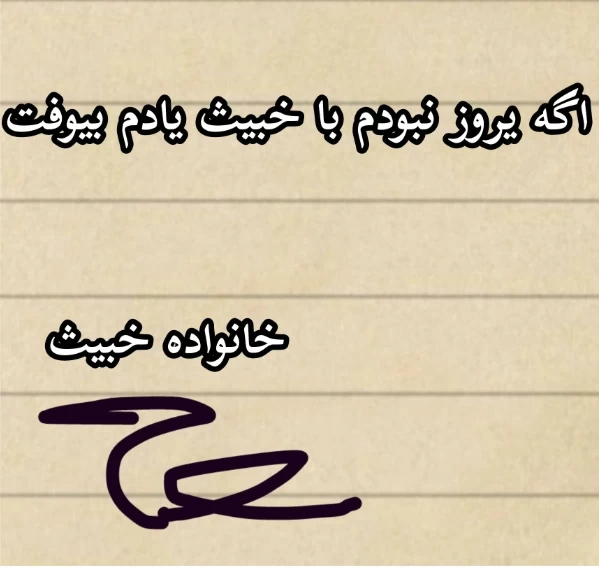 اگه یروز نبودم با خبیث یادم بیوفت
خانواده خبیث